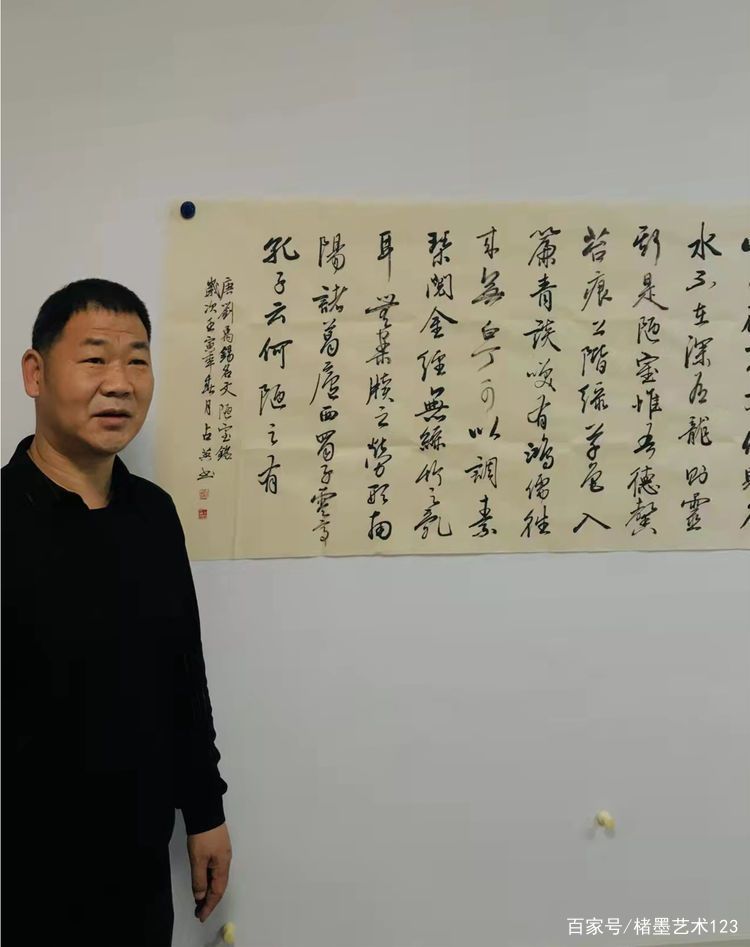 水不在深有龍則靈
斯是陋室惟吾德馨
苔痕上階綠草色入
簾青談笑有鴻儒往
來無白丁可以調素
琴閱金經無絲竹之亂
耳無案牘之勞形南
陽諸葛廬西蜀子雲亭
孔子云何陋之有
唐劉禹錫名文陋室銘
歲次壬寅年月占书
百家号/楮墨艺术123